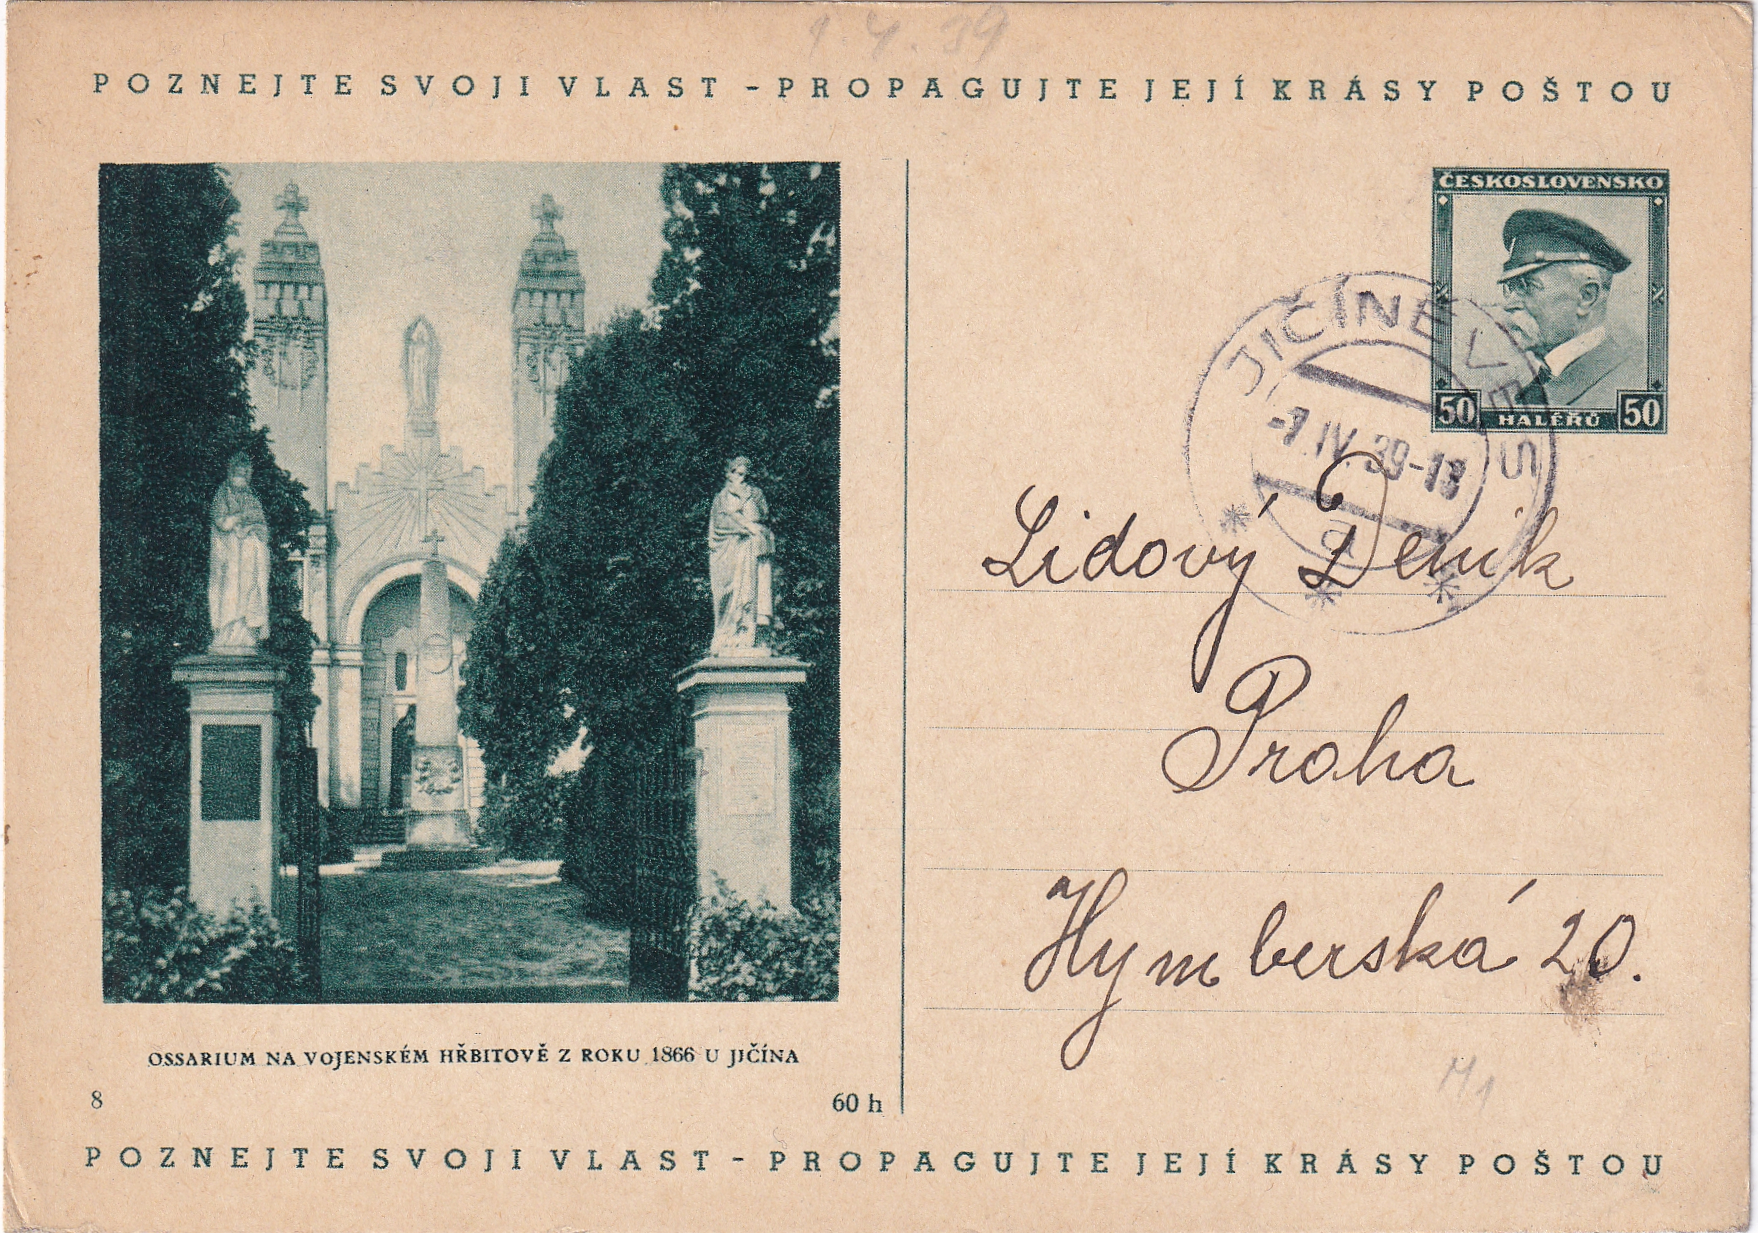 1.4.39
POZNEJTE SVOJI VLAST - PROPAGUJTE JEJÍ KRÁSY POŠTOU
ČESKOSLOVENSKO
50 HALÉŘŮ 50
JIČÍNĚVES
-7.IV.39-18
a
Lidový Deník
Praha
Hymberská 20.
OSSARIUM NA VOJENSKÉM HŘBITOVĚ Z ROKU 1866 U JIČÍNA
8
60 h
M1
POZNEJTE SVOJI VLAST - PROPAGUJTE JEJÍ KRÁSY POŠTOU